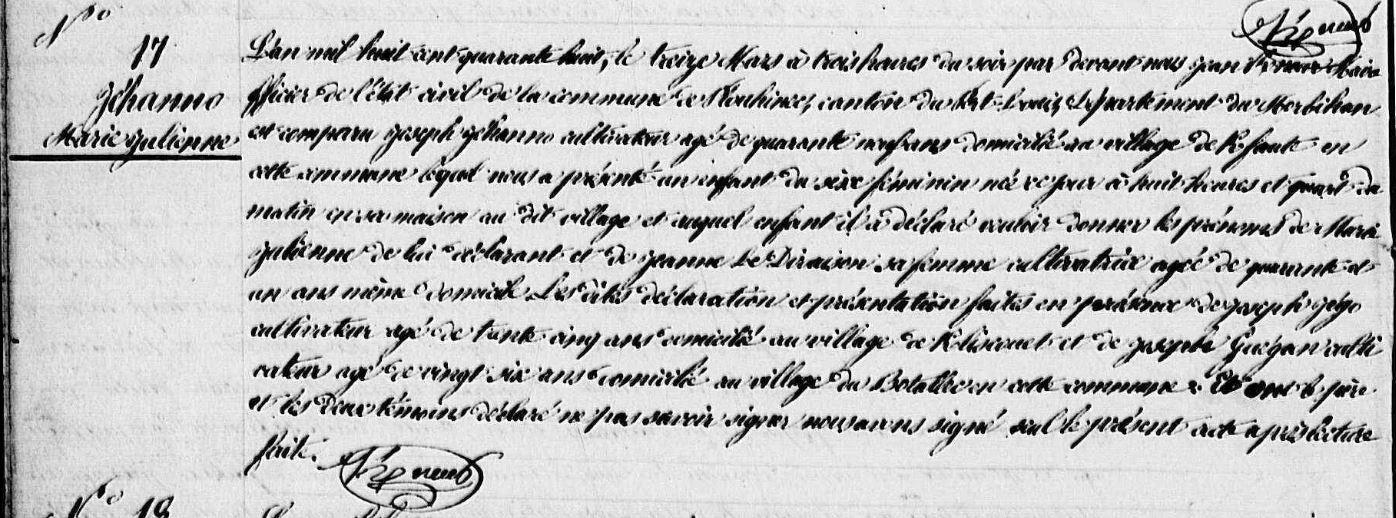 N.o
17
Jéhanno
Marie Julienne
L'an mil huit cent quarante huit, le treize Mars à trois heures du soir par devant nous Jean Maire
officier de l'état civil de la commune de Plouhinec, canton du Port-Louis, département du Morbihan
est comparu Joseph Jéhanno cultivateur agé de quarante neuf ans domicilié au village de en
cette commune lequel nous a présenté un enfant du sexe féminin né ce jour à huit heures et quart du
matin en sa maison au dit village et auquel enfant il a déclaré vouloir donner les prénoms de Marie
Julienne de lui déclarant et de Jeanne Le Diraison sa femme cultivatrice agée de quarante et
un ans même domicile Les dites déclaration et présentation faites en présence de Joseph
cultivateur agé de trente cinq ans domicilié au village de et de Joseph Guégan culti
vateur agé de vingt six ans domicilié au village du en cette commune le père
et les deux témoins déclaré ne pas savoir signer nous avons signé seul le présent acte après lecture
faite.
N.o 18